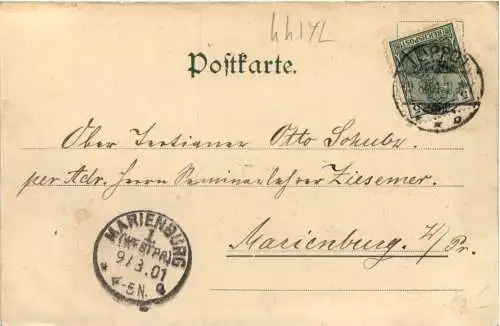 Postkarte.
Ober Tertianer Otto Schulz
per Adr. Herrn Seminarlehrer Ziesemer.
Marienburg. W/Pr.
MARIENBURG
(WESTPR)
1
9/3.01
4-5N.